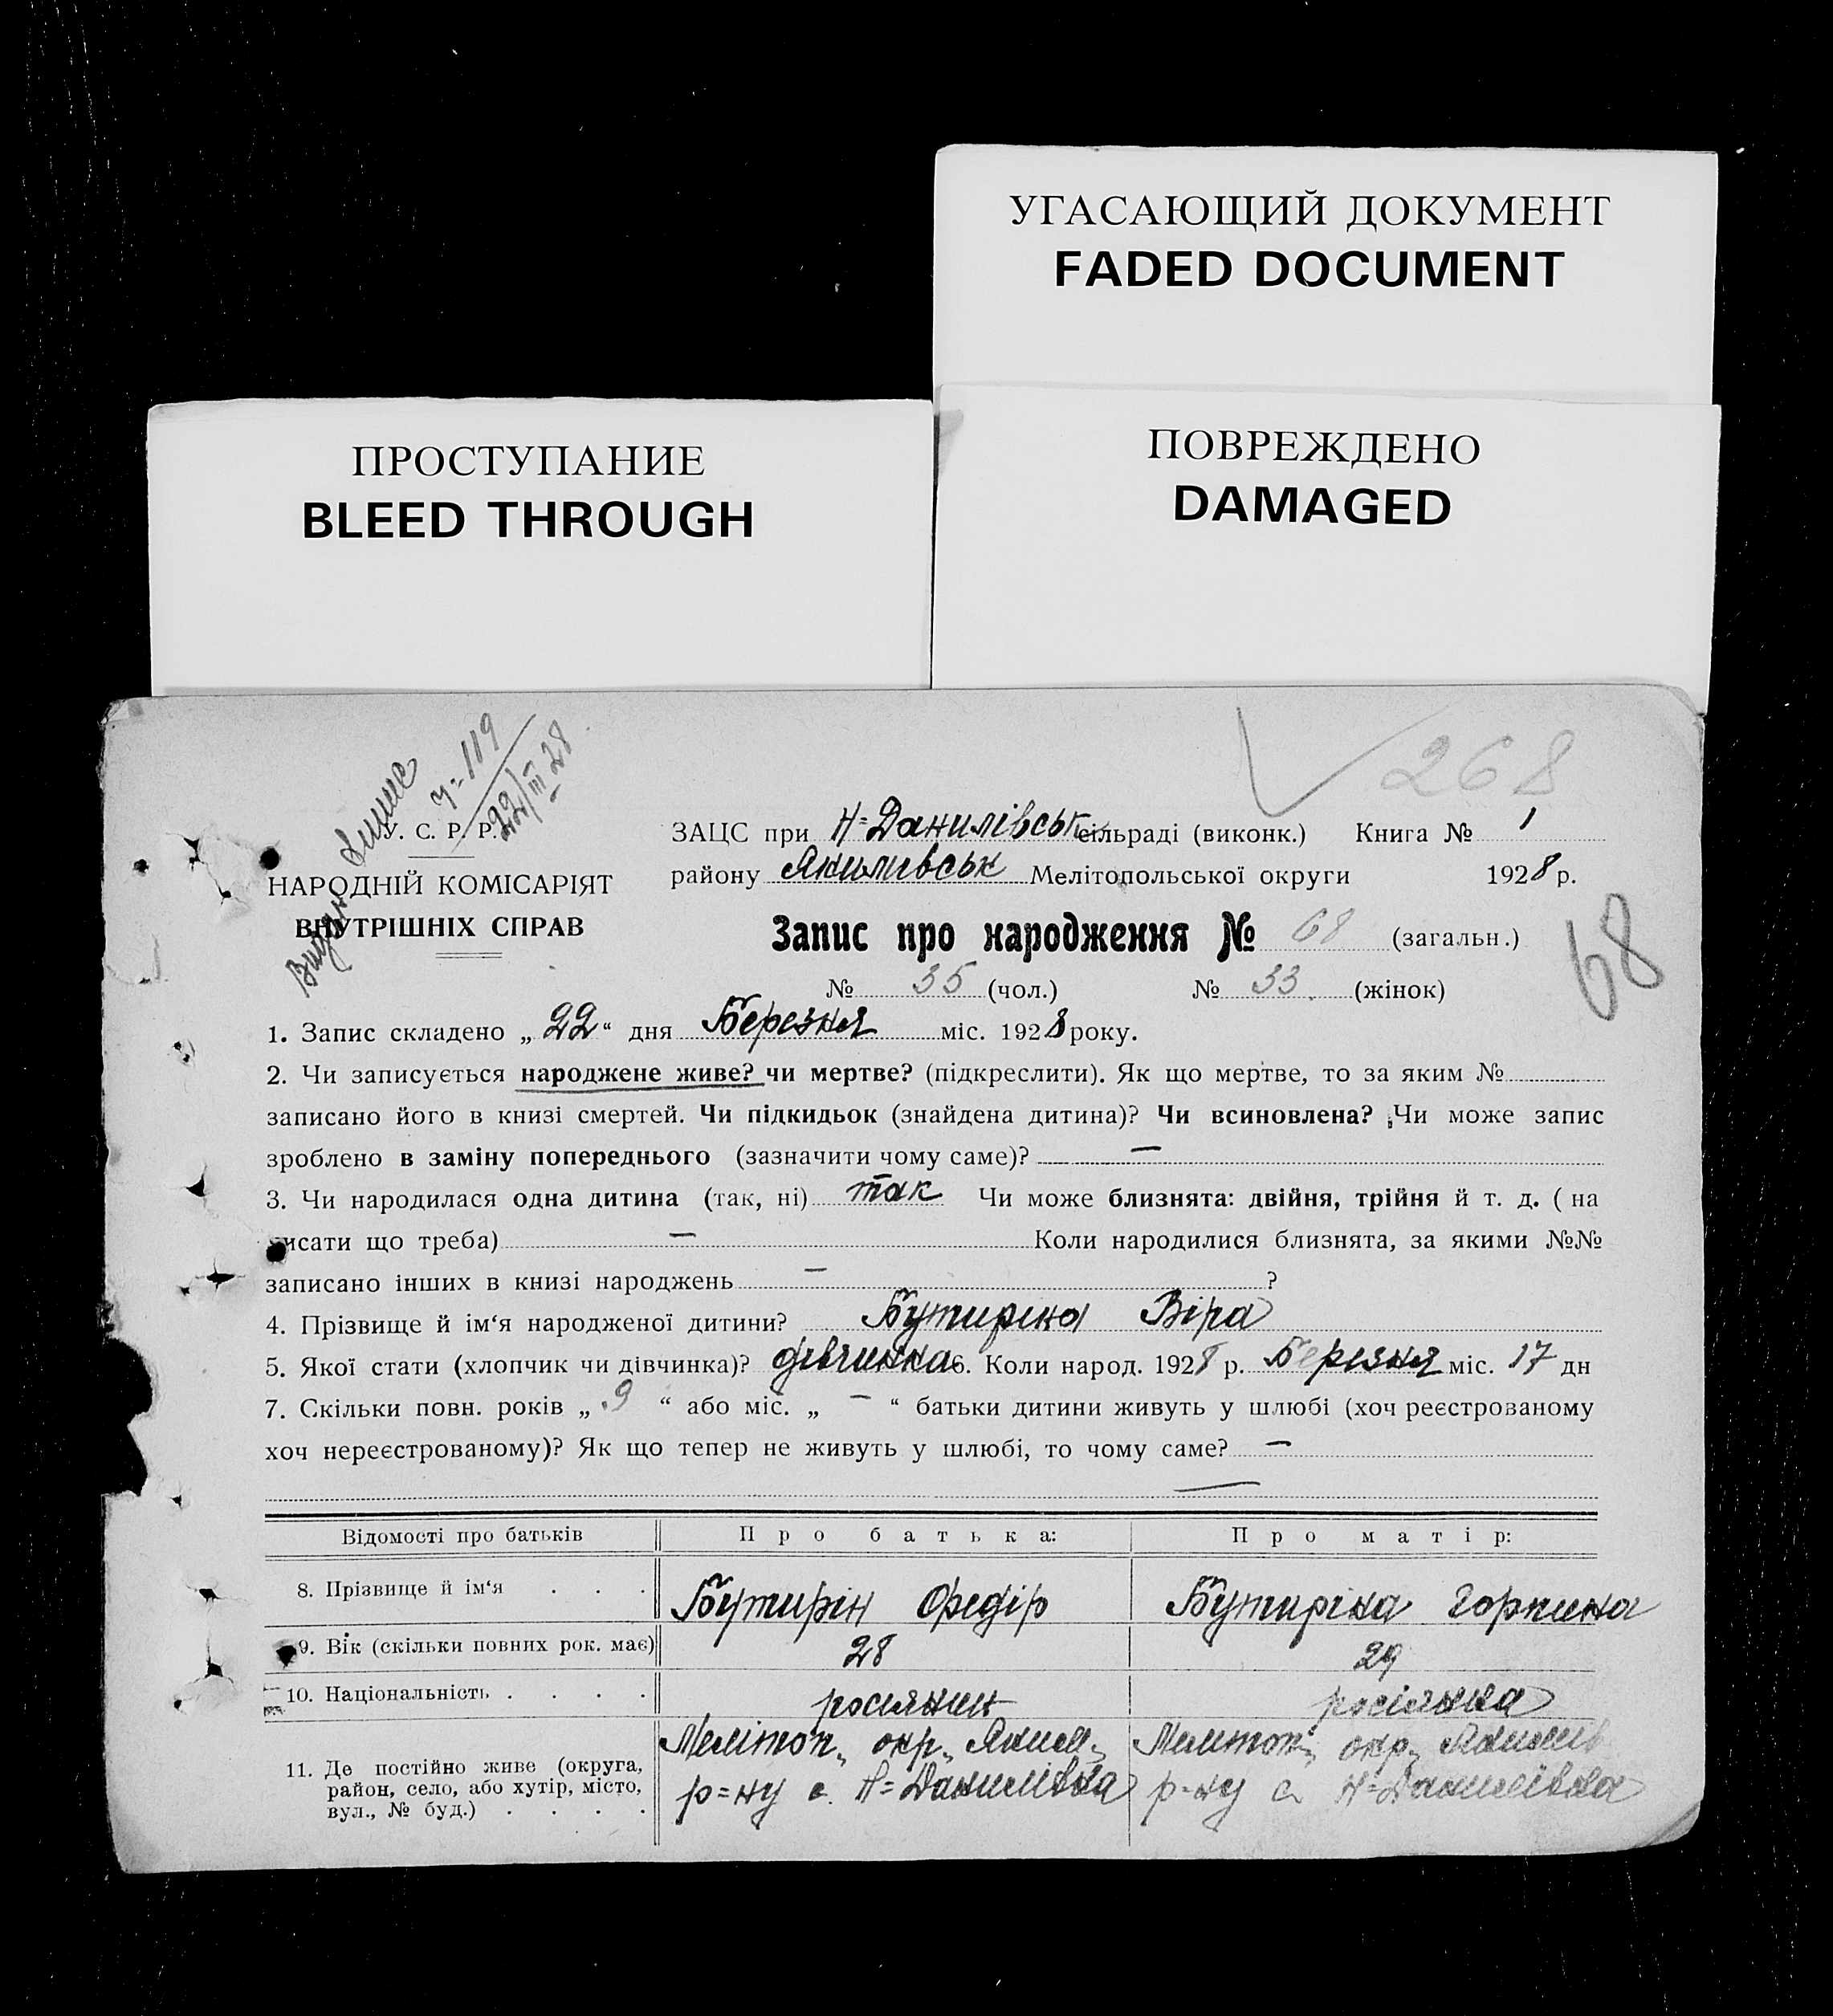 УГАСАЮЩИЙ ДОКУМЕНТ
FADED DOCUMENT
ПРОСТУПАНИЕ
BLEED THROUGH
ПОВРЕЖДЕНО
DAMAGED
268
Видан
ч-119
22/III 28
У. С. Р. Р.
НАРОДНІЙ КОМІСАРІЯТ
ВНУТРІШНІХ СПРАВ
ЗАЦС при Н=Данилівськ сільраді (виконк.) Книга № 1
району Якимівськ Мелітопольської округи 1928 р.
Запис про народження № 68 (загальн.)
68
№ 35 (чол.) № 33 (жінок)
1. Запис складено „ 22 “ дня Березня міс. 1928 року.
2. Чи записується народжене живе? чи мертве? (підкреслити). Як що мертве, то за яким №
записано його в книзі смертей. Чи підкидьок (знайдена дитина)? Чи всиновлена? Чи може запис
зроблено в заміну попереднього (зазначити чому саме)? —
3. Чи народилася одна дитина (так, ні) так Чи може близнята: двійня, трійня й т. д. ( на
писати що треба) — Коли народилися близнята, за якими №№
записано інших в книзі народжень — ?
4. Прізвище й ім‘я народженої дитини? Бутиріна Віра
5. Якої стати (хлопчик чи дівчинка)? дівчинка 6. Коли народ. 1928 р. Березня міс. 17 дн
7. Скільки повн. років „ 9 “ або міс. „ — “ батьки дитини живуть у шлюбі (хоч реєстрованому
хоч нереєстрованому)? Як що тепер не живуть у шлюбі, то чому саме? —
—
Відомості про батьків Про батька: Про матір:
8. Прізвище й ім‘я . . . Бутирін Федір Бутиріна Горпина
9. Вік (скільки повних рок. має) 28 29
10. Національність . . . . росиянин росіянка
11. Де постійно живе (округа, район, село, або хутір, місто, вул., № буд.) . . . .
Мелітоп. окр. Яким. Мелітоп. окр. Якимів
р=ну с. Н=Данилівка р=ну с. Н=Данилівка